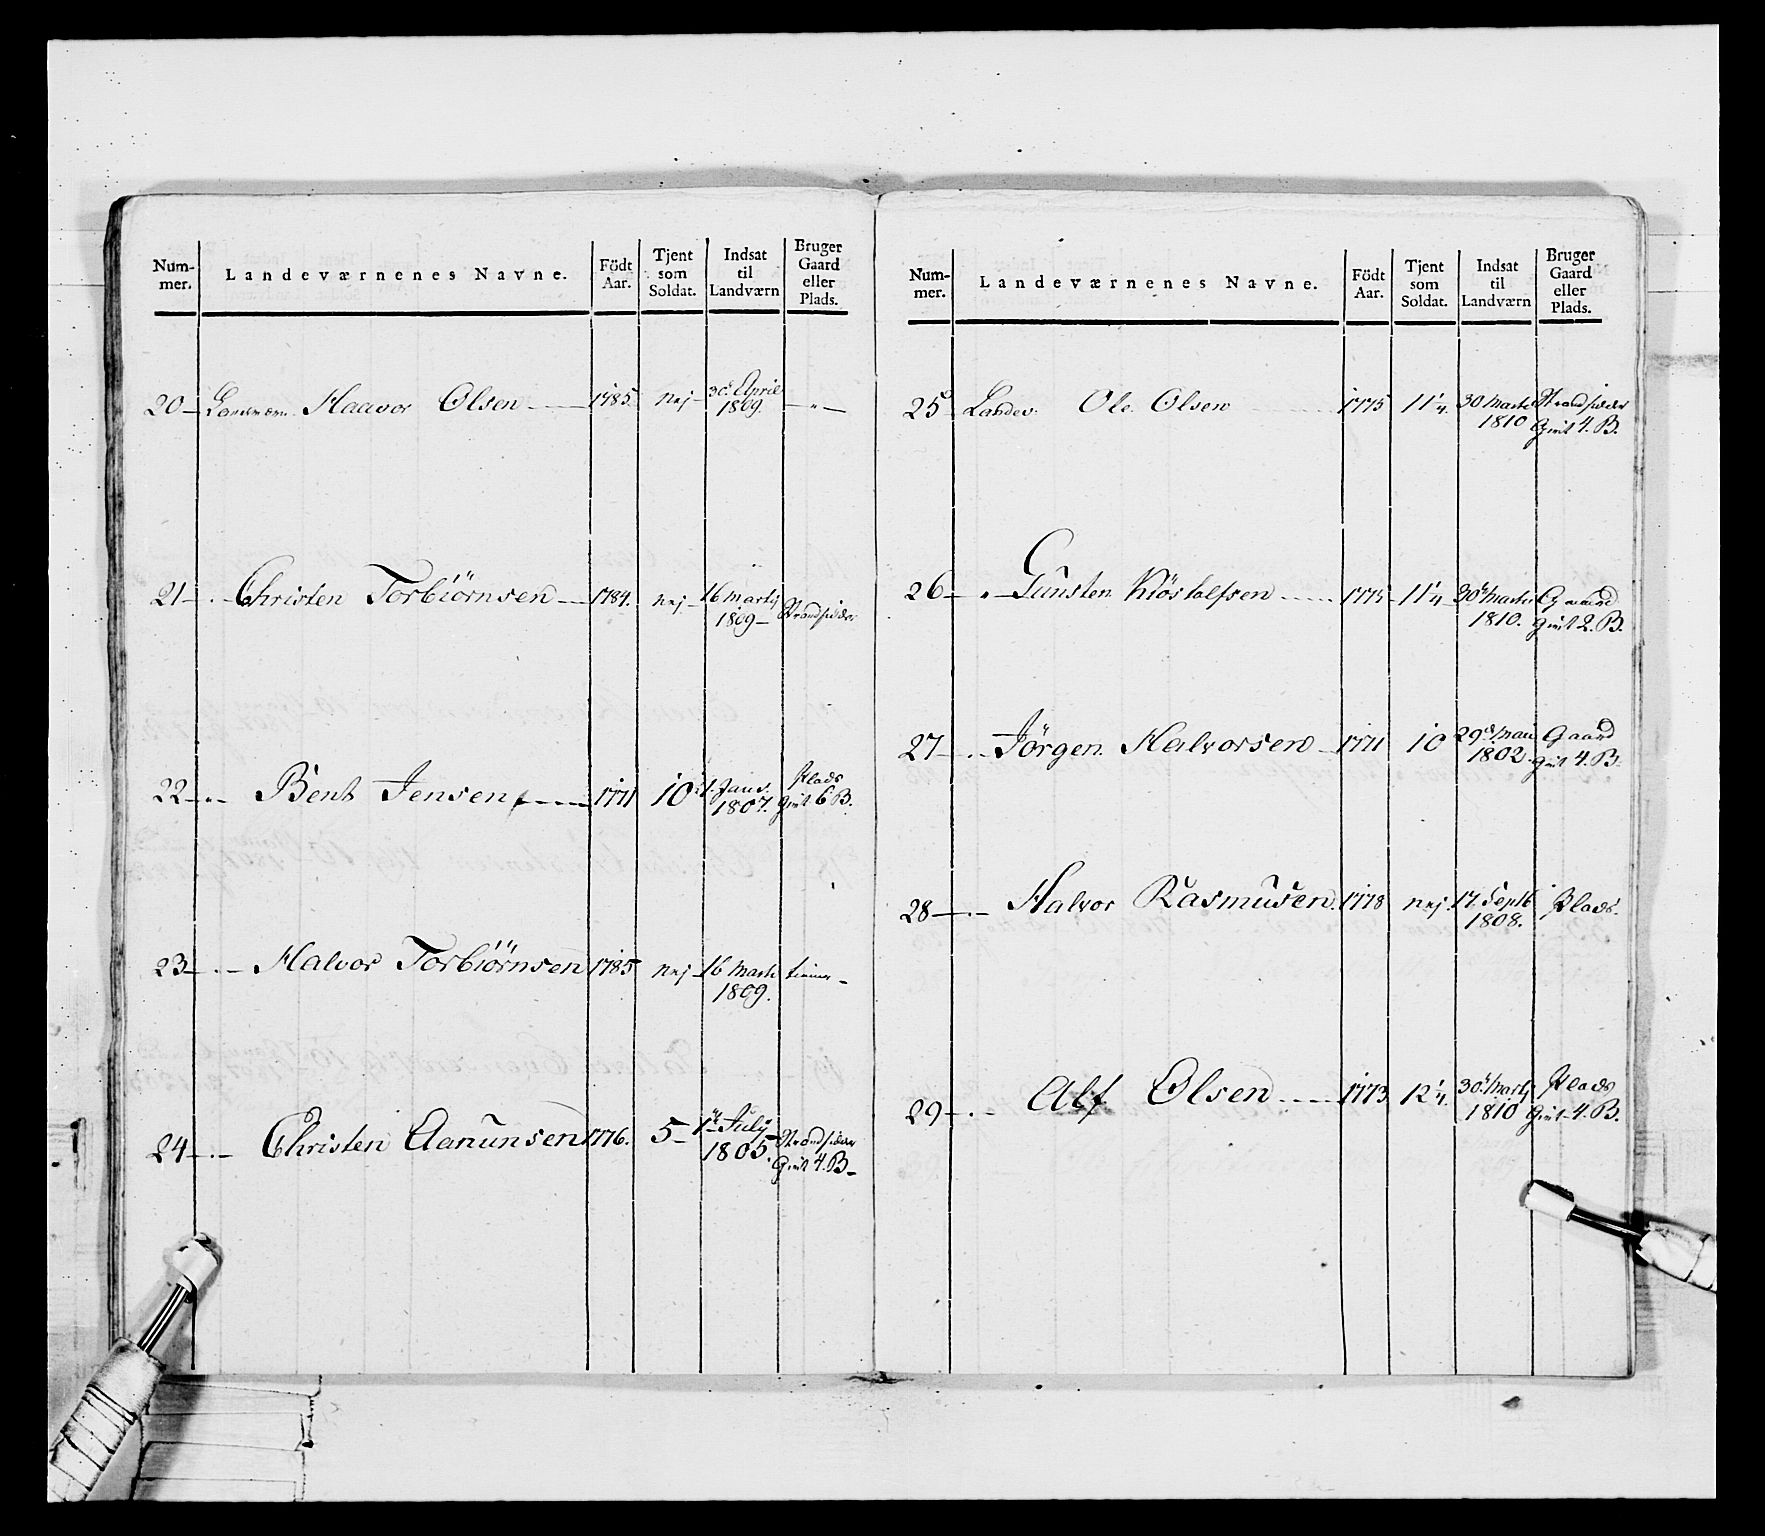 Num-
mer.
Landeværnenes Navne.
Födt
Aar.
Tjent
som
Soldat.
Indsat
til
Landværn
Bruger
Gaard
eller
Plads.
20 Landværn Haavor Olsen 1785. nej 30t April
1809. - " -
21 Christen Torbiörnsen 1784. nej 16 Martij
1809 Strandsidder
22 Bent Jensen 1771 10 1 Janv.
1807. Plads
Givt 6 B.
23 Halvor Torbiörnsen 1785 nej 16 Marti
1809.
24 Christen Aanunsen 1776. 5 1te Julÿ
1805. Strandsidder
Givt 4. B
Num-
mer.
Landeværnenes Navne.
Födt
Aar.
Tjent
som
Soldat.
Indsat
til
Landværn
Bruger
Gaard
eller
Plads.
25 Landev. Ole Olsen 1775 11 1/4. 30 Marti
1810 Strandsidder
Givt 4. B.
26 " Gunsten Kiöstelfsen 1775 11 1/4 30t Marti
1810. Gaard
Givt 2. B.
27 Jörgen Halvorsen 1771 10 29d Mai
1802. Gaard
Givt 4. B.
28 Halvor Rasmusen 1778 nej 17. Septb
1808. Plads.
29 Alf Olsen 1773 12 1/4. 30t Martij
1810 Plads
Givt 4. B.